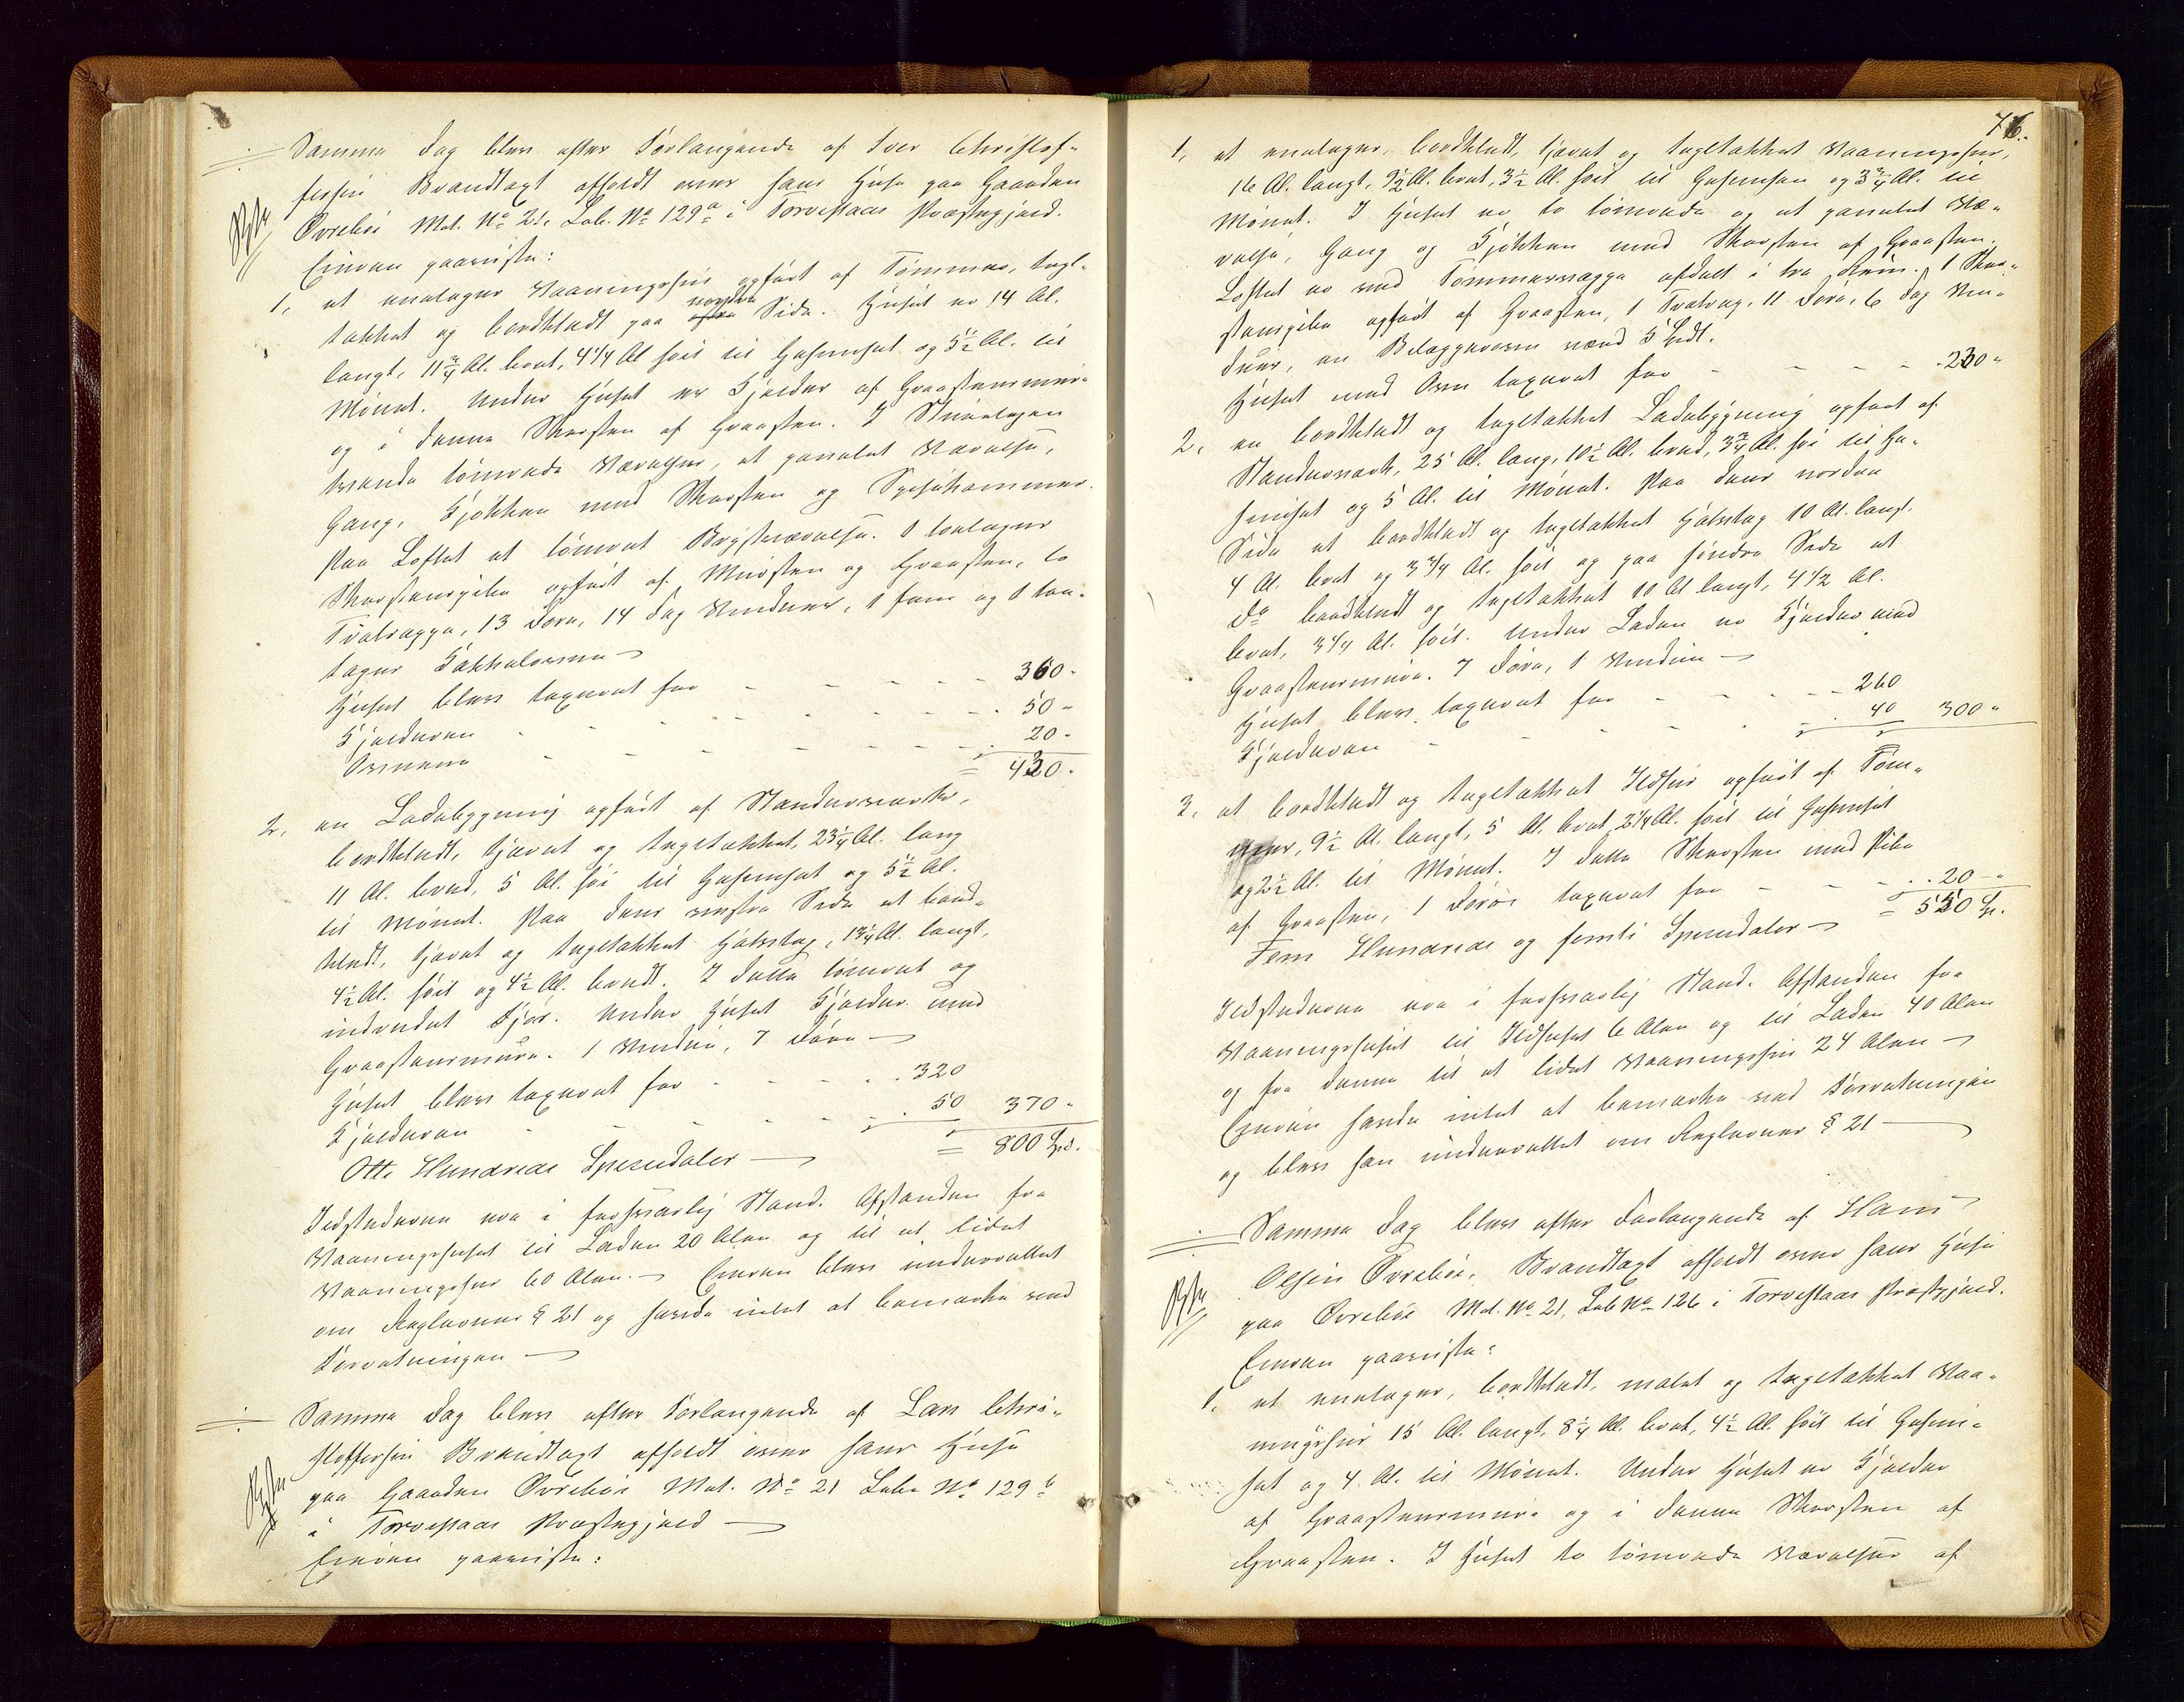 Samme Dag blev efter Forlangende af Iver Christof-
fersen Brandtaxt afholdt over hans Huse paa Gaarden
Øvrebøe Mat. No 21, Løb. No 129a i Torvestads Præstegjeld.
Eieren paaviste:
1, et enetages Vaaningshus opført af Tømmer, tegl-
tækket og bordklædt paa østre nordre Side. Huset er 14 Al.
langt, 11 3/4 Al. bredt, 4 1/4 Al høit til Gesimset og 5 1/2 Al. til
Mønet. Under Huset er Kjelder af Graastensmur
og i denne Skorsten af Graasten. I Stueetagen
trende tømrede Værelser, et panelet Værelse,
Gang, Kjøkken med Skorsten og Spisekammer.
Paa Loftet et tømret Brystværelse. 1 toetages
Skorstenspibe opført af Mursten og Graasten, 6
Tværvægge, 13 Døre, 14 Fag Vinduer, 1 fem og 1 tre-
etages Kakkelovne
Huset blev taxeret for - - - - 360 "
Kjelderen - - - - - 50 "
Ovnene - - - - - 20 "
= 430 "
2, en Ladebygning opført af Stenderværk,
bordklædt, tjæret og tegltækket, 23 1/4 Al. lang
11 Al. bred, 5 Al. høi til Gesimset og 5 1/2 Al.
til Mønet. Paa dens vestre Side et bord-
klædt, tjæret og tegltækket Halvtag, 13 1/4 Al. langt,
4 1/2 Al. høit og 4 1/2 Al. bredt. I dette tømret og
indredet Fjøs. Under Huset Kjelder med
Graastensmure. 1 Vindue, 7 Døre
Huset blev taxeret for - - - 320
Kjelderen - - - 50 370 "
= 800 Spd.
Otte Hundrede Speciedaler
Ildstederne ere i forsvarlig Stand. Afstanden fra
Vaaningshuset til Laden 20 Alen og til et lidet
Vaaningshus 60 Alen. Eieren blev underrettet
om Reglernes § 21 og havde intet at bemærke ved
Forretningen
Samme Dag blev efter Forlangende af Lars Chri-
stoffersen Brandtaxt afholdt over hans Huse
paa Gaarden Øvrebøe Mat. No 21 Løbe No 129b
i Torvestads Præstegjeld
Eieren paaviste:
76.
1, et enetages, bordklædt, tjæret og tegltækket Vaaningshus,
16 Al. langt, 9 1/2 Al. bredt, 3 1/2 Al. høit til Gesimsen og 3 3/4 Al. til
Mønet. I Huset er to tømrede og et panelet Væ-
relse, Gang og Kjøkken med Skorsten af Graasten.
Loftet er ved Tømmervægge afdelt i tre Rum. 1 Skor-
stenspibe opført af Graasten, 1 Tværvæg, 11 Døre, 6 Fag Vin-
duer, en Bilæggerovn værd 5 Spdl.
Huset med Ovn taxeret for - - - - 230 "
2, en bordklædt og tegltækket Ladebygning opført af
Stenderværk, 25 Al. lang, 10 1/2 Al. bred, 3 3/4 Al. høi til Ge-
simset og 5 Al. til Mønet. Paa dens nordre
Side et bordklædt og tegltækket Halvtag 10 Al. langt,
4 Al. bredt og 3 3/4 Al. høit og paa søndre Side et
do bordklædt og tegltækket 10 Al langt, 4 1/2 Al.
bredt, 3 1/4 Al. høit. Under Laden er Kjelder med
Graastensmure. 7 Døre, 1 Vindue
Huset blev taxeret for - - - 260
Kjelderen - - - 40 300 "
3, et bordklædt og tegltækket Ildhus opført af Tøm-
mer, 9 1/2 Al. langt, 5 Al. bredt, 2 1/4 Al. høit til Gesimset
og 2 1/2 Al. til Mønet. I dette Skorsten med Pibe
af Graasten, 1 Dør taxeret for - - - 20 "
= 550 Sp.
Fem Hundrede og femti Speciedaler
Ildstederne ere i forsvarlig Stand. Afstanden fra
Vaaningshuset til Ildhuset 6 Alen og til Laden 40 Alen
og fra denne til et lidet Vaaningshus 24 Alen
Eieren havde intet at bemærke ved Forretningen
og blev han underrettet om Reglernes § 21
Samme Dag blev efter Forlangende af Hans
Olsen Øvrebøe, Brandtaxt afholdt over hans Huse
paa Øvrebøe Mat. No 21, Løb No 126 i Torvestads Præstegjeld.
Eieren paaviste:
1, et enetages, bordklædt, malet og tegltækket Vaa-
ningshus 15 Al. langt, 8 1/4 Al. bredt, 4 1/2 Al. høit til Gesim-
set og 4 Al. til Mønet. Under Huset er Kjelder
af Graastensmure og i denne Skorsten af
Graasten. I Huset to tømrede Værelser af